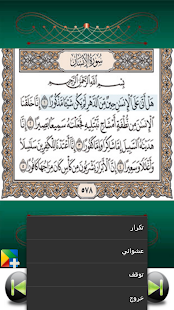 سورة الإنسان
بِسْمِ اللَّهِ الرَّحْمَٰنِ الرَّحِيمِ
هَلْ أَتَىٰ عَلَى الْإِنسَٰنِ حِينٌ مِّنَ الدَّهْرِ لَمْ يَكُن شَيْـًٔا مَّذْكُورًا ١ إِنَّا خَلَقْنَا
الْإِنسَٰنَ مِن نُّطْفَةٍ أَمْشَاجٍ نَّبْتَلِيهِ فَجَعَلْنَٰهُ سَمِيعًۢا بَصِيرًا ٢ إِنَّا
هَدَيْنَٰهُ السَّبِيلَ إِمَّا شَاكِرًا وَإِمَّا كَفُورًا ٣ إِنَّا أَعْتَدْنَا لِلْكَٰفِرِينَ سَلَٰسِلَا۟
وَأَغْلَٰلًا وَسَعِيرًا ٤ إِنَّ الْأَبْرَارَ يَشْرَبُونَ مِن كَأْسٍ كَانَ مِزَاجُهَا كَافُورًا ٥
٥٧٨
تكرار
عشوائي
توقف
خروج